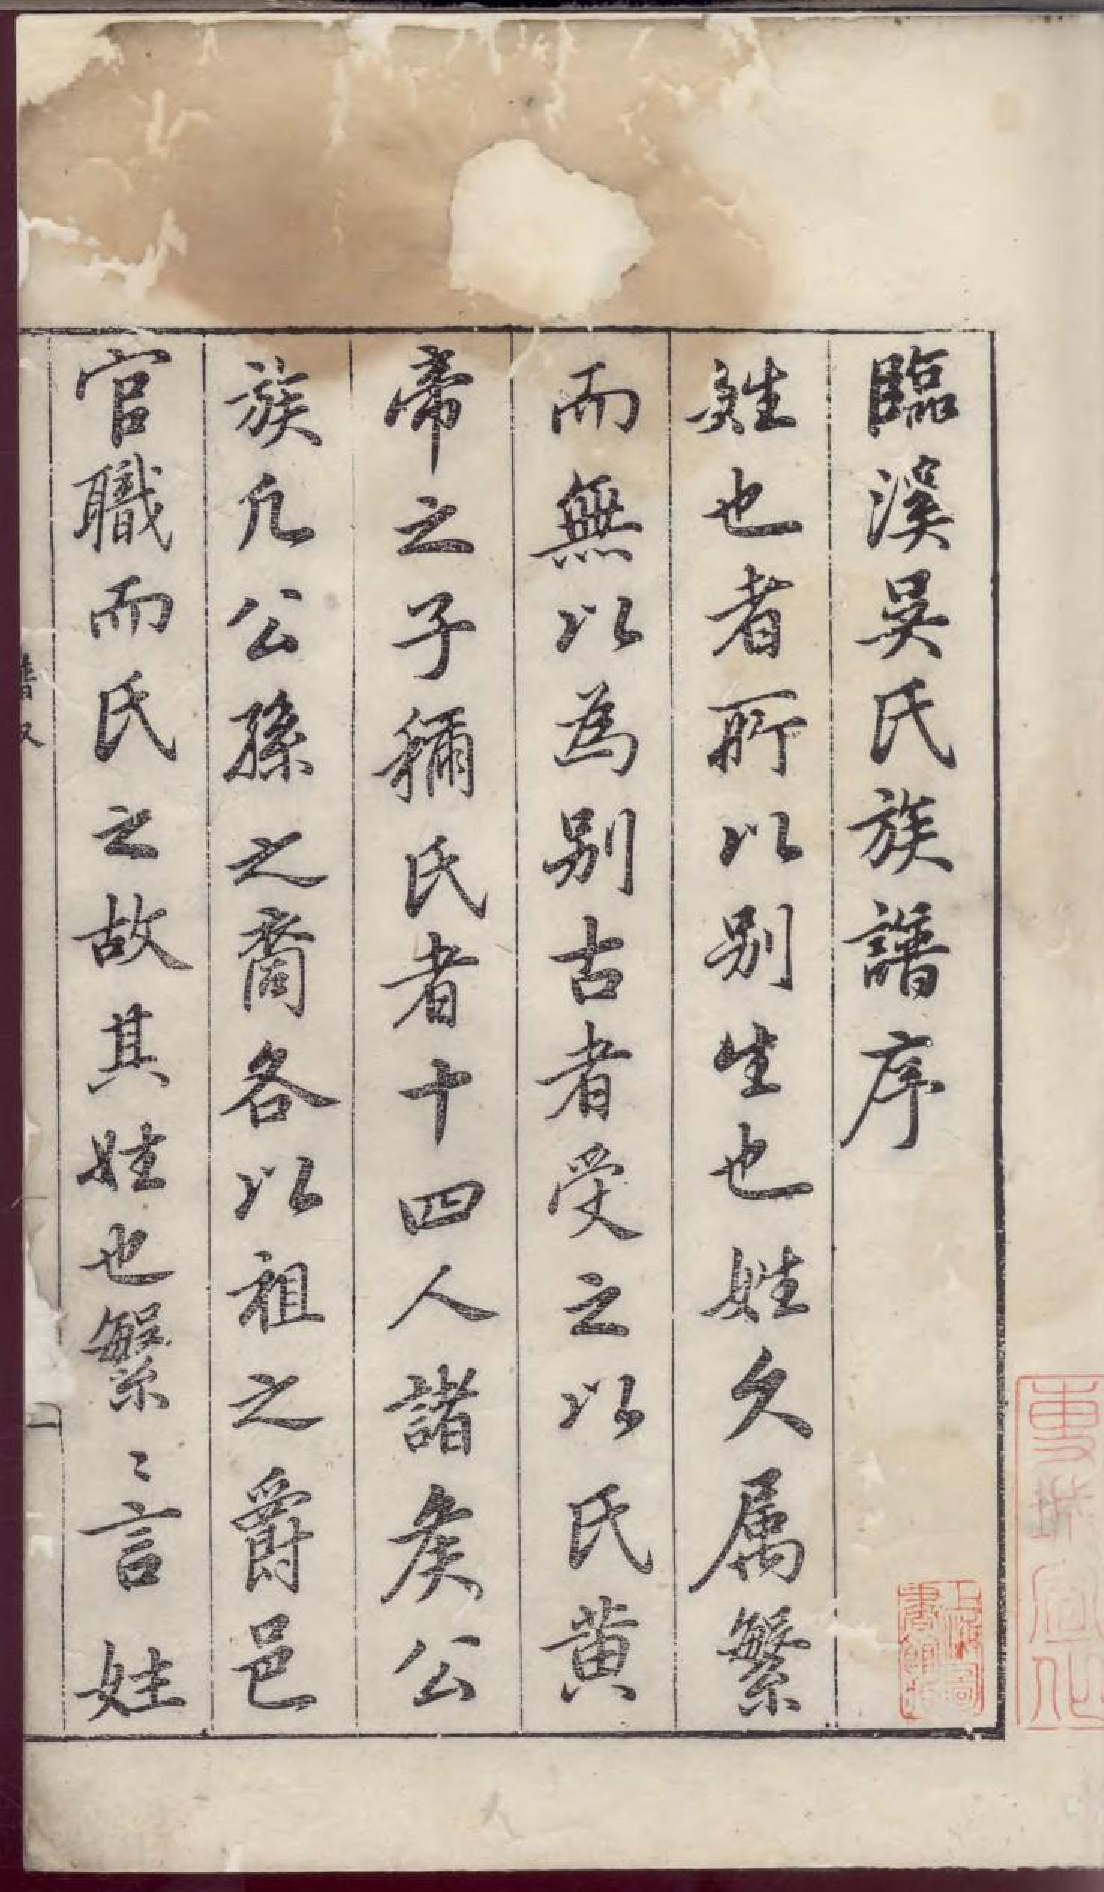 臨溪吳氏族譜序
姓也者所以别生也姓久属繁
而無以為别古者受之以氏黄
帝之子稱氏者十四人諸矦公
族凡公孫之裔各以祖之爵邑
官職而氏之故其姓也繁〻言姓